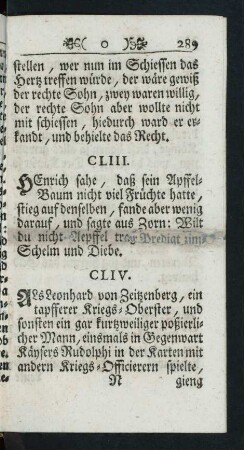 ( 0 ) 289
stellen, wer nun im Schiessen das
Hertz treffen würde, der wäre gewiß
der rechte Sohn, zwey waren willig,
der rechte Sohn aber wollte nicht
mit schiessen, hiedurch ward er er-
kandt, und behielte das Recht.
CLIII.
HEnrich sahe, daß sein Apffel-
Baum nicht viel Früchte hatte,
stieg auf denselben, fande aber wenig
darauf, und sagte aus Zorn: Wilt
du nicht Aepffel
Schelm und Diebe.
CLIV.
Als Leonhard von Zeitzenberg, ein
tapfferer Kriegs-Oberster, und
sonsten ein gar kurtzweiliger poßierli-
cher Mann, einsmals in Gegenwart
Käysers Rudolphi in der Karten mit
andern Kriegs-Officierern spielte,
N gieng